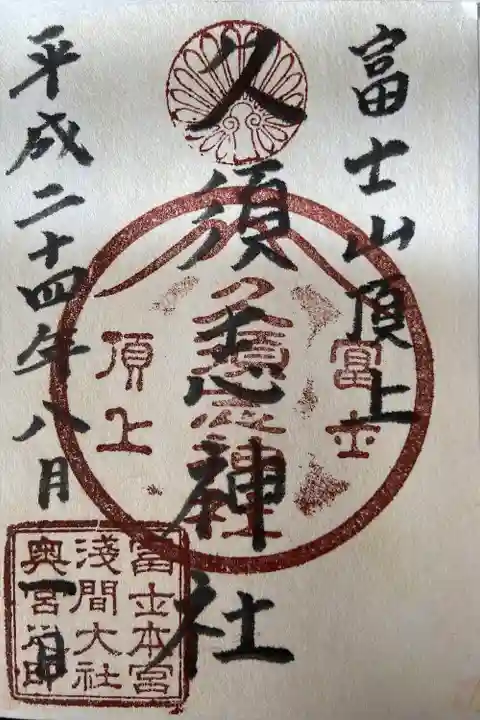 富士山頂上
久須志神社
平成二十四年八月一日
富士
頂上
久須志
富士本宮
淺間大社
奥宮之印